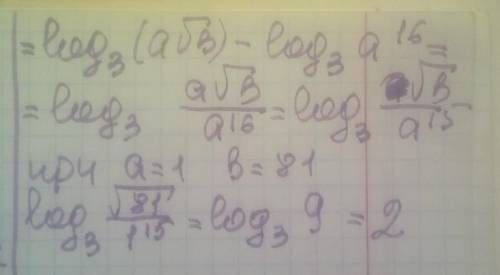 = log₃ (a√B) - log₃ a¹⁶ =
= log₃ a√B/a¹⁶ = log₃ √B/a¹⁵
при a=1 в=81
log₃ √81/1¹⁵ = log₃ 9 = 2